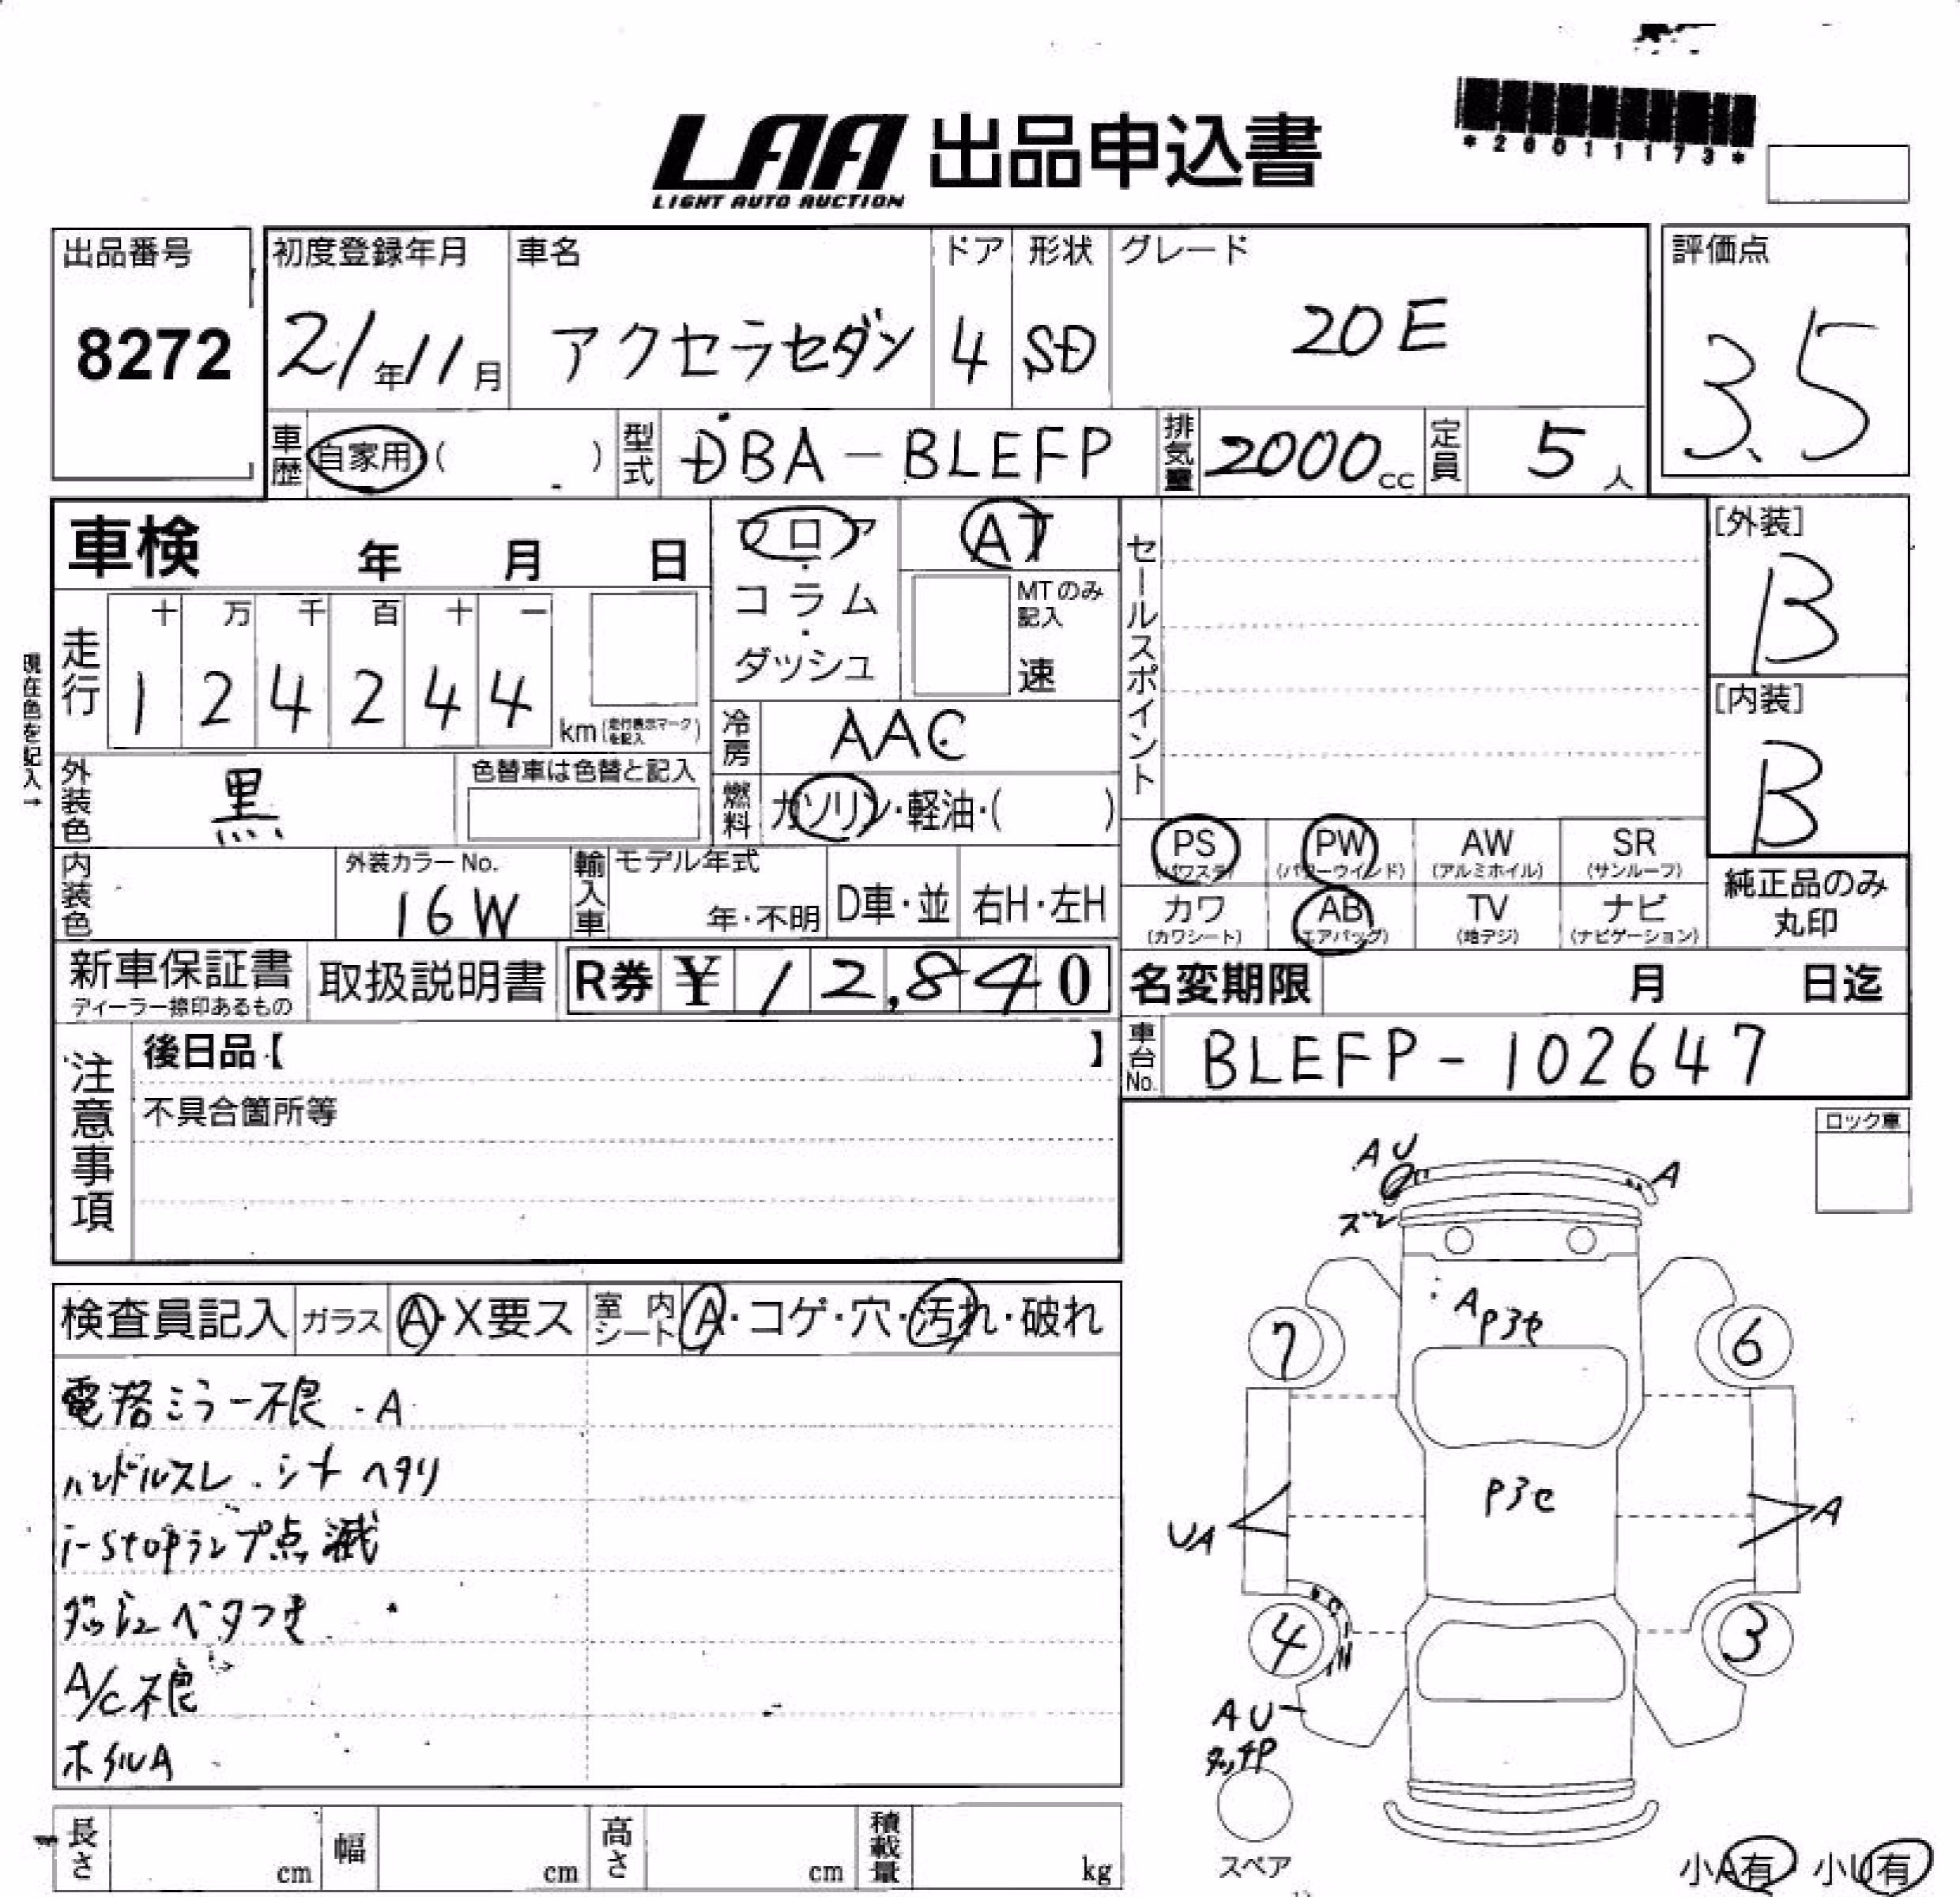 *26011173*
LAA 出品申込書
LIGHT AUTO AUCTION
出品番号 初度登録年月 車名 ドア 形状 グレード 評価点
8272 21年11月 アクセラセダン 4 SD 20E 3.5
車歴 自家用( ) 型式 DBA-BLEFP 排気量 2000cc 定員 5人
車検 年 月 日 フロア・コラム・ダッシュ AT
MTのみ記入 速
セールスポイント
[外装] B
[内装] B
現在色を記入→
走行 十 万 千 百 十 一
1 2 4 2 4 4 km(走行表示マークを記入)
冷房 AAC
外装色 黒 色替車は色替と記入
燃料 ガソリン・軽油・( )
PS (パワステ) PW (パワーウインド) AW (アルミホイル) SR (サンルーフ)
カワ (カワシート) AB (エアバッグ) TV (地デジ) ナビ (ナビゲーション)
純正品のみ
丸印
内装色 外装カラーNo. 16W 輸入車 モデル年式 年・不明 D車・並 右H・左H
新車保証書 取扱説明書 R券 ¥12,840
ディーラー捺印あるもの
名変期限 月 日迄
車台No. BLEFP-102647
注意事項
後日品【 】
不具合箇所等
ロック車
検査員記入 ガラス A・X要ス 室内シート A・コゲ・穴・汚れ・破れ
電格ミラー不良・A
ハンドルスレ.シートヘタリ
i-stopランプ点滅
ダッシュベタつき
A/C不良
ホイルA
AU
A
ズレ
A
P3セ
7
6
P3セ
UA
A
4
3
AU
タッチP
スペア
小A有 小U有
長さ cm 幅 cm 高さ cm 積載量 kg